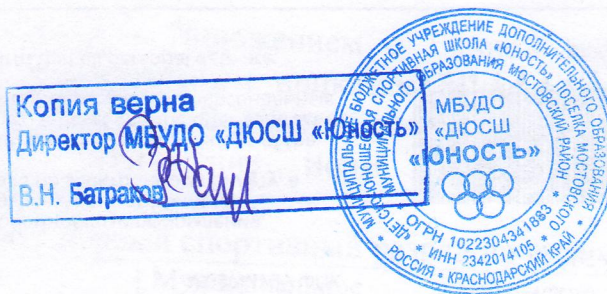 Копия верна
Директор МБУДО «ДЮСШ «Юность»
В.Н. Батраков
МУНИЦИПАЛЬНОЕ БЮДЖЕТНОЕ УЧРЕЖДЕНИЕ ДОПОЛНИТЕЛЬНОГО ОБРАЗОВАНИЯ
«ДЕТСКО-ЮНОШЕСКАЯ СПОРТИВНАЯ ШКОЛА «ЮНОСТЬ» ПОСЕЛКА МОСТОВСКОГО
МУНИЦИПАЛЬНОГО ОБРАЗОВАНИЯ МОСТОВСКИЙ РАЙОН
МБУДО
«ДЮСШ
«ЮНОСТЬ»
* ОГРН 1022304341883 *
* ИНН 2342014105 *
* РОССИЯ * КРАСНОДАРСКИЙ КРАЙ *